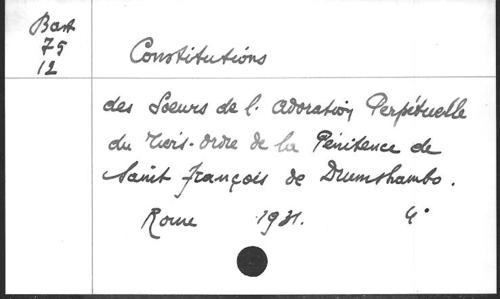 Bast
75
12
Constitutions
des Soeurs de l. adoration Perpétuelle
du Tiers-Ordre de la Pénitence de
Saint François de Drumshambo.
Rome 1931. 4°